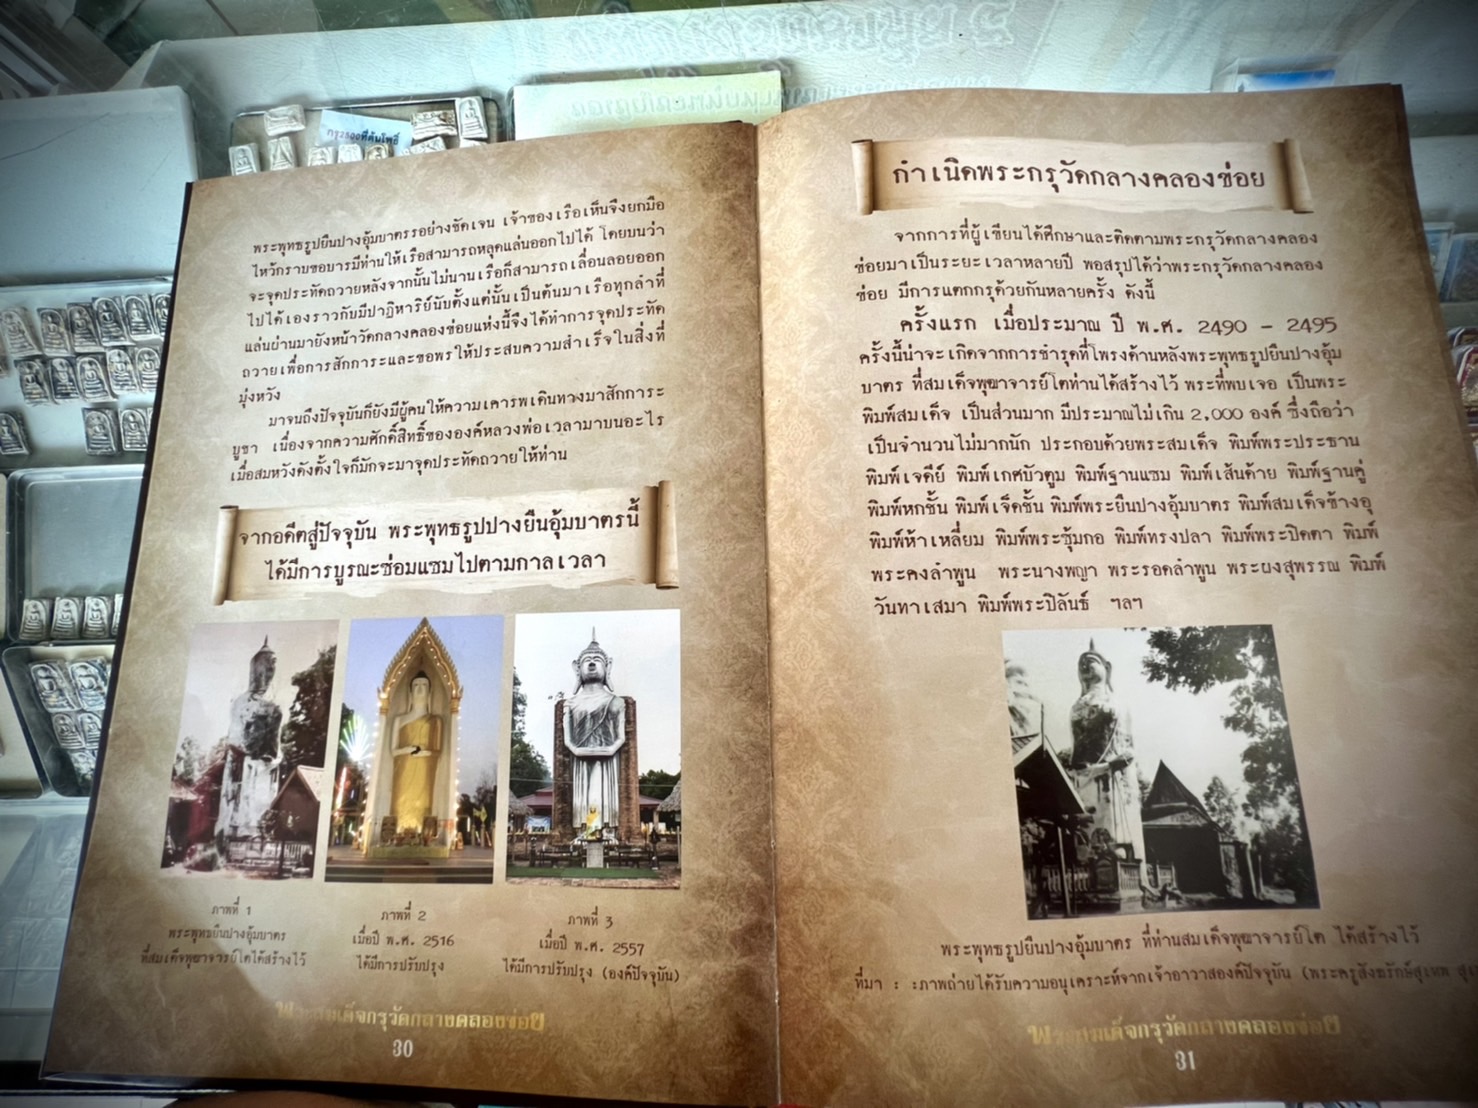 กรุ2500ที่ต้นโพธิ์
พระพุทธรูปยืนปางอุ้มบาตรรอย่างชัดเจน เจ้าของเรือเห็นจึงยกมือ
ไหว้กราบขอบารมีท่านให้เรือสามารถหลุดแล่นออกไปได้ โดยบนว่า
จะจุดประทัดถวายหลังจากนั้นไม่นานเรือก็สามารถเลื่อนลอยออก
ไปได้เองราวกับมีปาฏิหาริย์นับตั้งแต่นั้นเป็นต้นมาเรือทุกลำที่
แล่นผ่านมายังหน้าวัดกลางคลองข่อยแห่งนี้จึงได้ทำการจุดประทัด
ถวายเพื่อการสักการะและขอพรให้ประสบความสำเร็จในสิ่งที่
มุ่งหวัง
มาจนถึงปัจจุบันก็ยังมีผู้คนให้ความเคารพเดินทางมาสักการะ
บูชา เนื่องจากความศักดิ์สิทธิ์ขององค์หลวงพ่อเวลามาบนอะไร
เมื่อสมหวังดังตั้งใจก็มักจะมาจุดประทัดถวายให้ท่าน
จากอดีตสู่ปัจจุบัน พระพุทธรูปปางยืนอุ้มบาตรนี้
ได้มีการบูรณะซ่อมแซมไปตามกาลเวลา
ภาพที่ 1
พระพุทธยืนปางอุ้มบาตร
ที่สมเด็จพุฒาจารย์โตได้สร้างไว้
ภาพที่ 2
เมื่อปี พ.ศ. 2516
ได้มีการปรับปรุง
ภาพที่ 3
เมื่อปี พ.ศ. 2557
ได้มีการปรับปรุง (องค์ปัจจุบัน)
พระสมเด็จกรุวัดกลางคลองข่อย
30
กำเนิดพระกรุวัดกลางคลองข่อย
จากการที่ผู้เขียนได้ศึกษาและติดตามพระกรุวัดกลางคลอง
ข่อยมาเป็นระยะเวลาหลายปี พอสรุปได้ว่าพระกรุวัดกลางคลอง
ข่อย มีการแตกกรุด้วยกันหลายครั้ง ดังนี้
ครั้งแรก เมื่อประมาณ ปี พ.ศ. 2490 - 2495
ครั้งนี้น่าจะเกิดจากการชำรุดที่โพรงด้านหลังพระพุทธรูปยืนปางอุ้ม
บาตร ที่สมเด็จพุฒาจารย์โตท่านได้สร้างไว้ พระที่พบเจอ เป็นพระ
พิมพ์สมเด็จ เป็นส่วนมาก มีประมาณไม่เกิน 2,000 องค์ ซึ่งถือว่า
เป็นจำนวนไม่มากนัก ประกอบด้วยพระสมเด็จ พิมพ์พระประธาน
พิมพ์เจดีย์ พิมพ์เกศบัวตูม พิมพ์ฐานแซม พิมพ์เส้นด้าย พิมพ์ฐานคู่
พิมพ์หกชั้น พิมพ์เจ็ดชั้น พิมพ์พระยืนปางอุ้มบาตร พิมพ์สมเด็จข้างอุ
พิมพ์ห้าเหลี่ยม พิมพ์พระซุ้มกอ พิมพ์ทรงปลา พิมพ์พระปิดตา พิมพ์
พระคงลำพูน พระนางพญา พระรอดลำพูน พระผงสุพรรณ พิมพ์
วันทาเสมา พิมพ์พระปิลันธ์ ฯลฯ
พระพุทธรูปยืนปางอุ้มบาตร ที่ท่านสมเด็จพุฒาจารย์โต ได้สร้างไว้
ที่มา : :ภาพถ่ายได้รับความอนุเคราะห์จากเจ้าอาวาสองค์ปัจจุบัน (พระครูสังฆรักษ์สุเทพ
พระสมเด็จกรุวัดกลางคลองข่อย
31